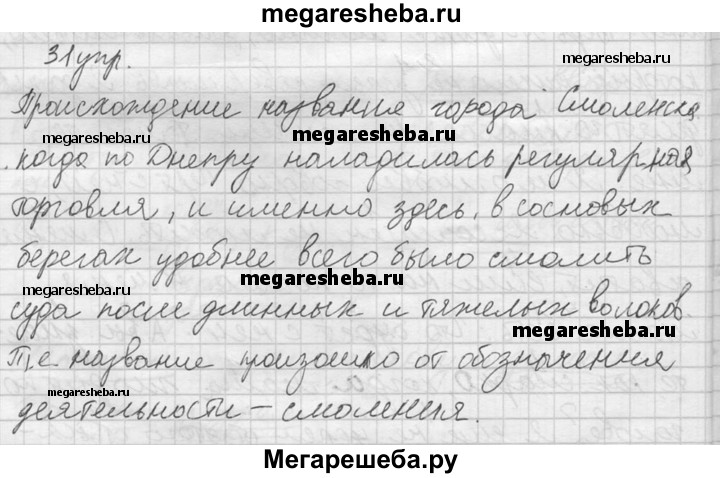 megaresheba.ru
31 упр.
megaresheba.ru
Происхождение название города Смоленска,
megaresheba.ru
megaresheba.ru
когда по Днепру наладилась регулярная
торговля, и именно здесь, в сосновых
берегах удобнее всего было смолить
megaresheba.ru
megaresheba.ru
суда после длинных и тяжелых волоков.
megaresheba.ru
Т.е. название произошло от обозначения
megaresheba.ru
деятельности – смоления.
Мегарешеба.ру